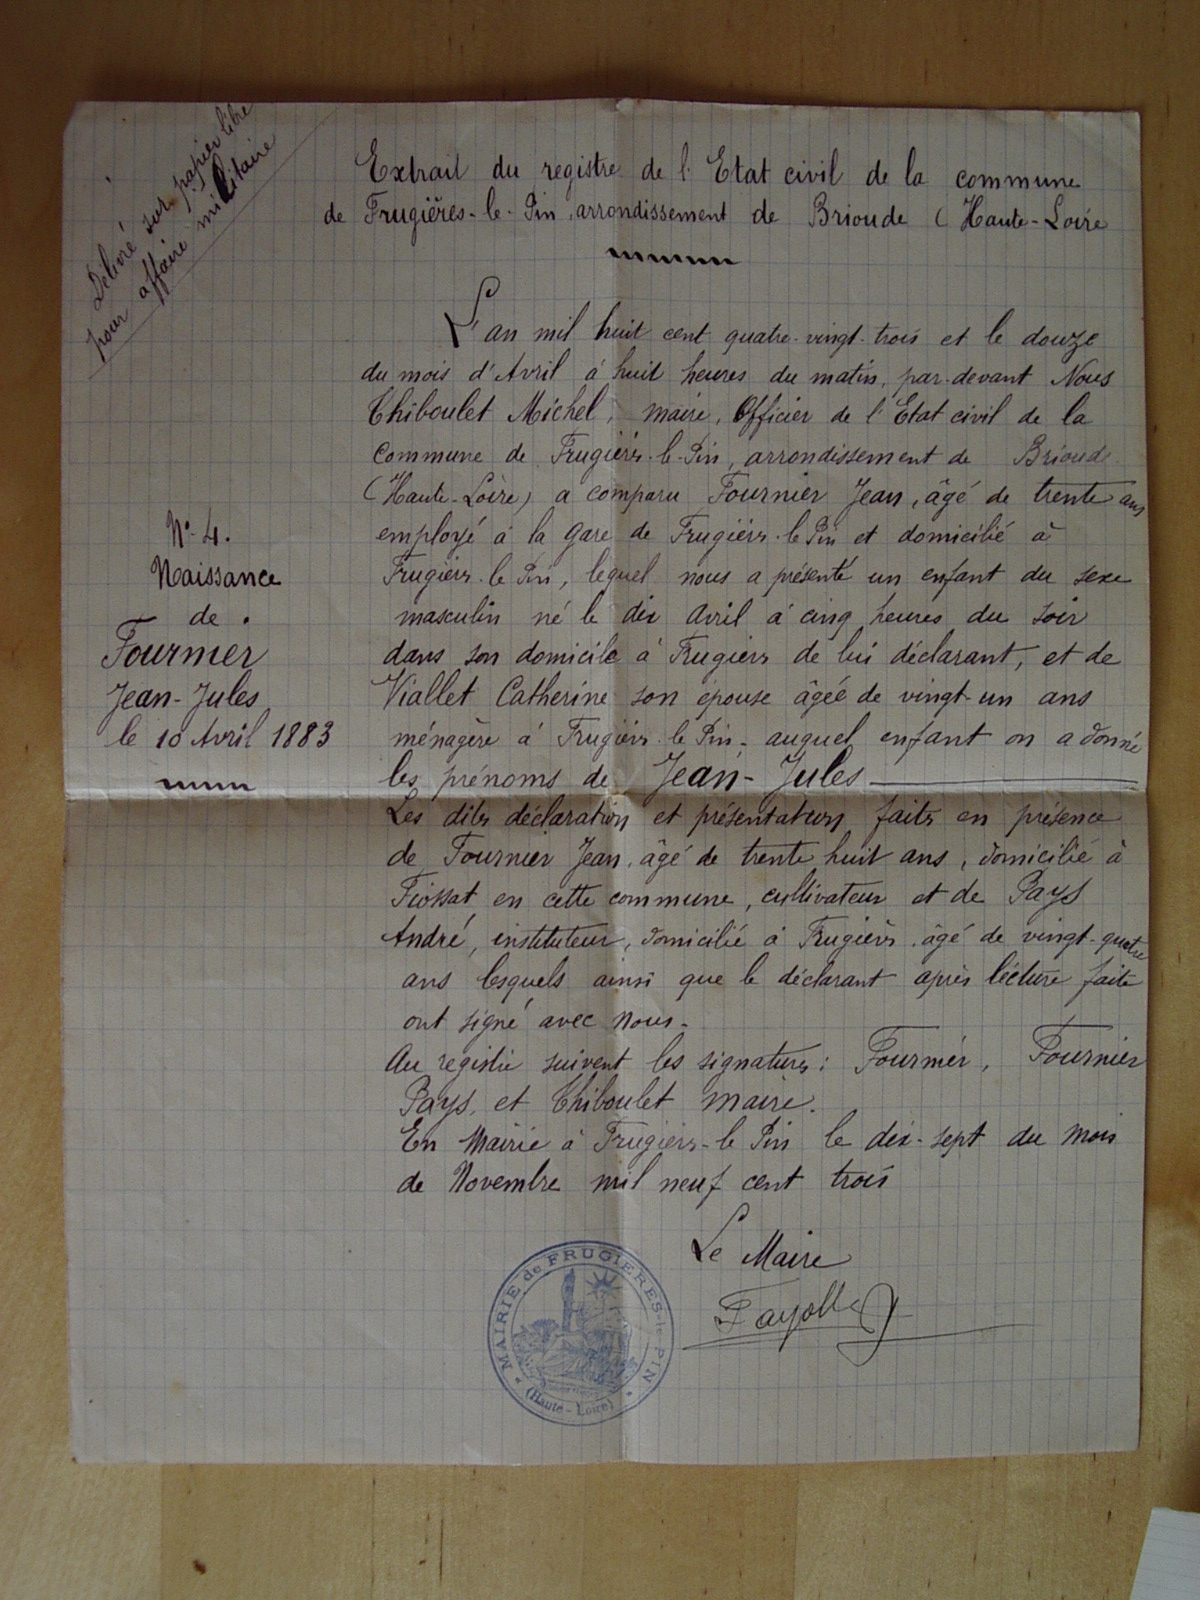 Délivré sur papier libre
pour affaire militaire
Extrait du registre de l'Etat civil de la commune
de Frugières-le-Pin, arrondissement de Brioude (Haute-Loire
L'an mil huit cent quatre-vingt-trois et le douze
du mois d'Avril à huit heures du matin, par-devant Nous
Thiboulet Michel, maire, Officier de l'Etat civil de la
commune de Frugières-le-Pin, arrondissement de Brioude
(Haute-Loire) a comparu Fournier Jean, âgé de trente ans
employé à la gare de Frugières-le-Pin et domicilié à
Frugières-le-Pin, lequel nous a présenté un enfant du sexe
masculin né le dix avril à cinq heures du soir
dans son domicile à Frugières de lui déclarant, et de
Viallet Catherine son épouse âgée de vingt-un ans
ménagère à Frugières-le-Pin - auquel enfant on a donné
les prénoms de Jean-Jules
Les dites déclaration et présentation faites en présence
de Fournier Jean, âgé de trente huit ans, domicilié à
Fiossat en cette commune, cultivateur et de Pays
André, instituteur, domicilié à Frugières, âgé de vingt-quatre
ans lesquels ainsi que le déclarant après lecture faite
ont signé avec nous.
Au registre suivent les signatures: Fournier, Fournier
Pays, et Thiboulet maire.
En Mairie à Frugières-le Pin le dix-sept du mois
de Novembre mil neuf cent trois
Le Maire
Fayolle
N° 4.
Naissance
de
Fournier
Jean-Jules
le 10 Avril 1883
MAIRIE de FRUGIERES-le-PIN
(Haute-Loire)